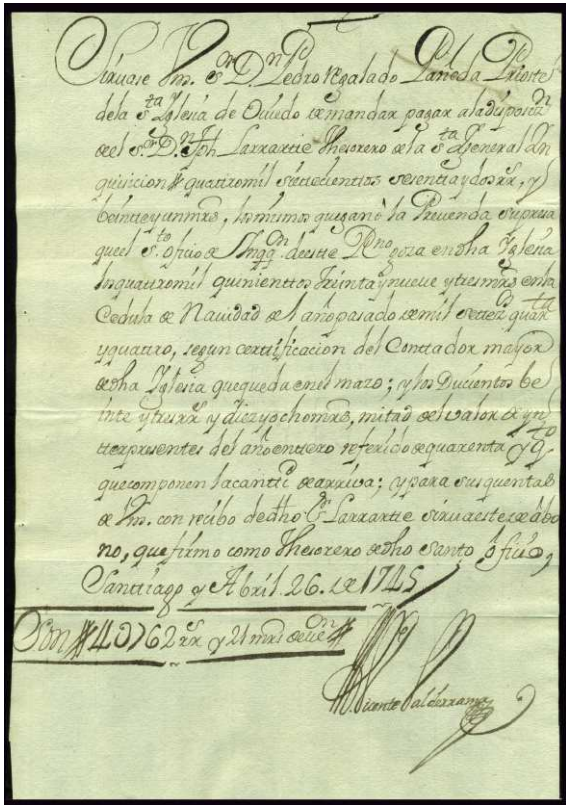 Siruase Vm. Sn. Dn. Pedro Regalado Pañeda Prioste
dela sta. Iglesia de Ouiedo demandar pagar aladisposicn.
de el sr. Dn. Jph Larrartie Thesorero de la sta. Ygeneral Yn
quisicion quattromil settecientos sesenta y dos rrs., y
beinte y un mrs., los mismos que ganò la Prevenda supresa
que el sto. oficio de Ynqqon. de este Rno. goza en dha Yglesia
los quattromil quinienttos treinta y nueve y tres mrs en la
Cedula de Navidad de el año pasado de mil settezs. quarta.
y quattro, segun certtificacion del Conttador mayor
de dha Yglesia que queda en el mazo; y los Ducientos be
inte y tres rrs. y diez y ocho mrs, mitad de el valor de yn
tterpresentes del año enttero referido de quarenta y qto.
que componen la canttd. de arriva; y para sus quentas
de Vm. con recibo de dho Sr. Larrartie sirua este de abo
no, que firmo como Thesorero de dho Santo Oficio,
Santtiago y Abril 26. de 1745
Son 4U762 rrs. y 21 mrs de von.
Vicente Valderrama